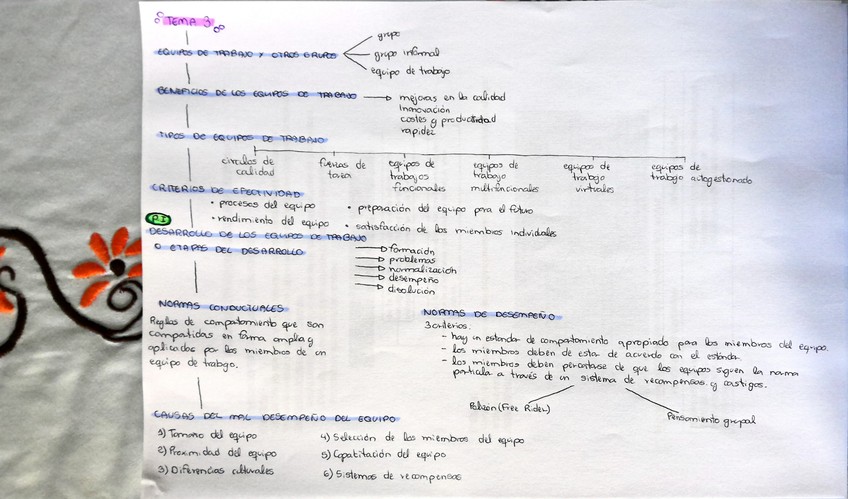 TEMA 3
EQUIPOS DE TRABAJO Y OTROS GRUPOS
grupo
grupo informal
equipo de trabajo
BENEFICIOS DE LOS EQUIPOS DE TRABAJO
mejoras en la calidad
Innovación
costes y productividad
rapidez
TIPOS DE EQUIPOS DE TRABAJO
circulos de calidad
fuerzas de tarea
equipos de trabajos funcionales
equipos de trabajo multifuncionales
equipos de trabajo virtuales
equipos de trabajo autogestionado
CRITERIOS DE EFECTIVIDAD
• procesos del equipo
• preparación del equipo para el futuro
• rendimiento del equipo
• satisfacción de los miembros individuales
DESARROLLO DE LOS EQUIPOS DE TRABAJO
O ETAPAS DEL DESARROLLO
formación
problemas
normalización
desempeño
disolución
NORMAS CONDUCTUALES
Reglas de comportamiento que son
compartidas en forma amplia y
aplicadas por los miembros de un
equipo de trabajo.
NORMAS DE DESEMPEÑO
3 criterios.
- hay un estandar de comportamiento apropiado para los miembros del equipo.
- los miembros deben de estar de acuerdo con el estándar.
- los miembros deben percatarse de que los equipos siguen la norma
particular a través de un sistema de recompensas y castigos.
Polizón (Free Rider)
Pensamiento grupal
CAUSAS DEL MAL DESEMPEÑO DEL EQUIPO
1) Tamaño del equipo
2) Proximidad del equipo
3) Diferencias culturales
4) Selección de los miembros del equipo
5) Capacitación del equipo
6) Sistemas de recompensas